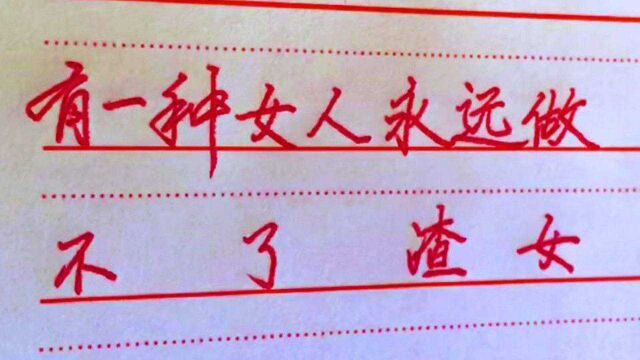 有一种女人永远做
不了渣女